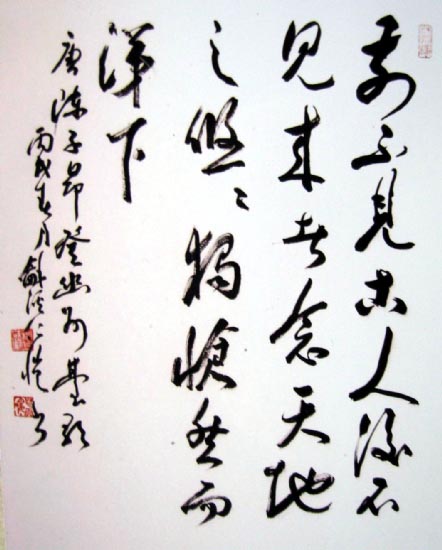 前不見古人後不
見来者念天地
之悠〻獨愴然而
涕下
唐陈子昂登幽州臺歌
丙戌春月龢溪仁愷书